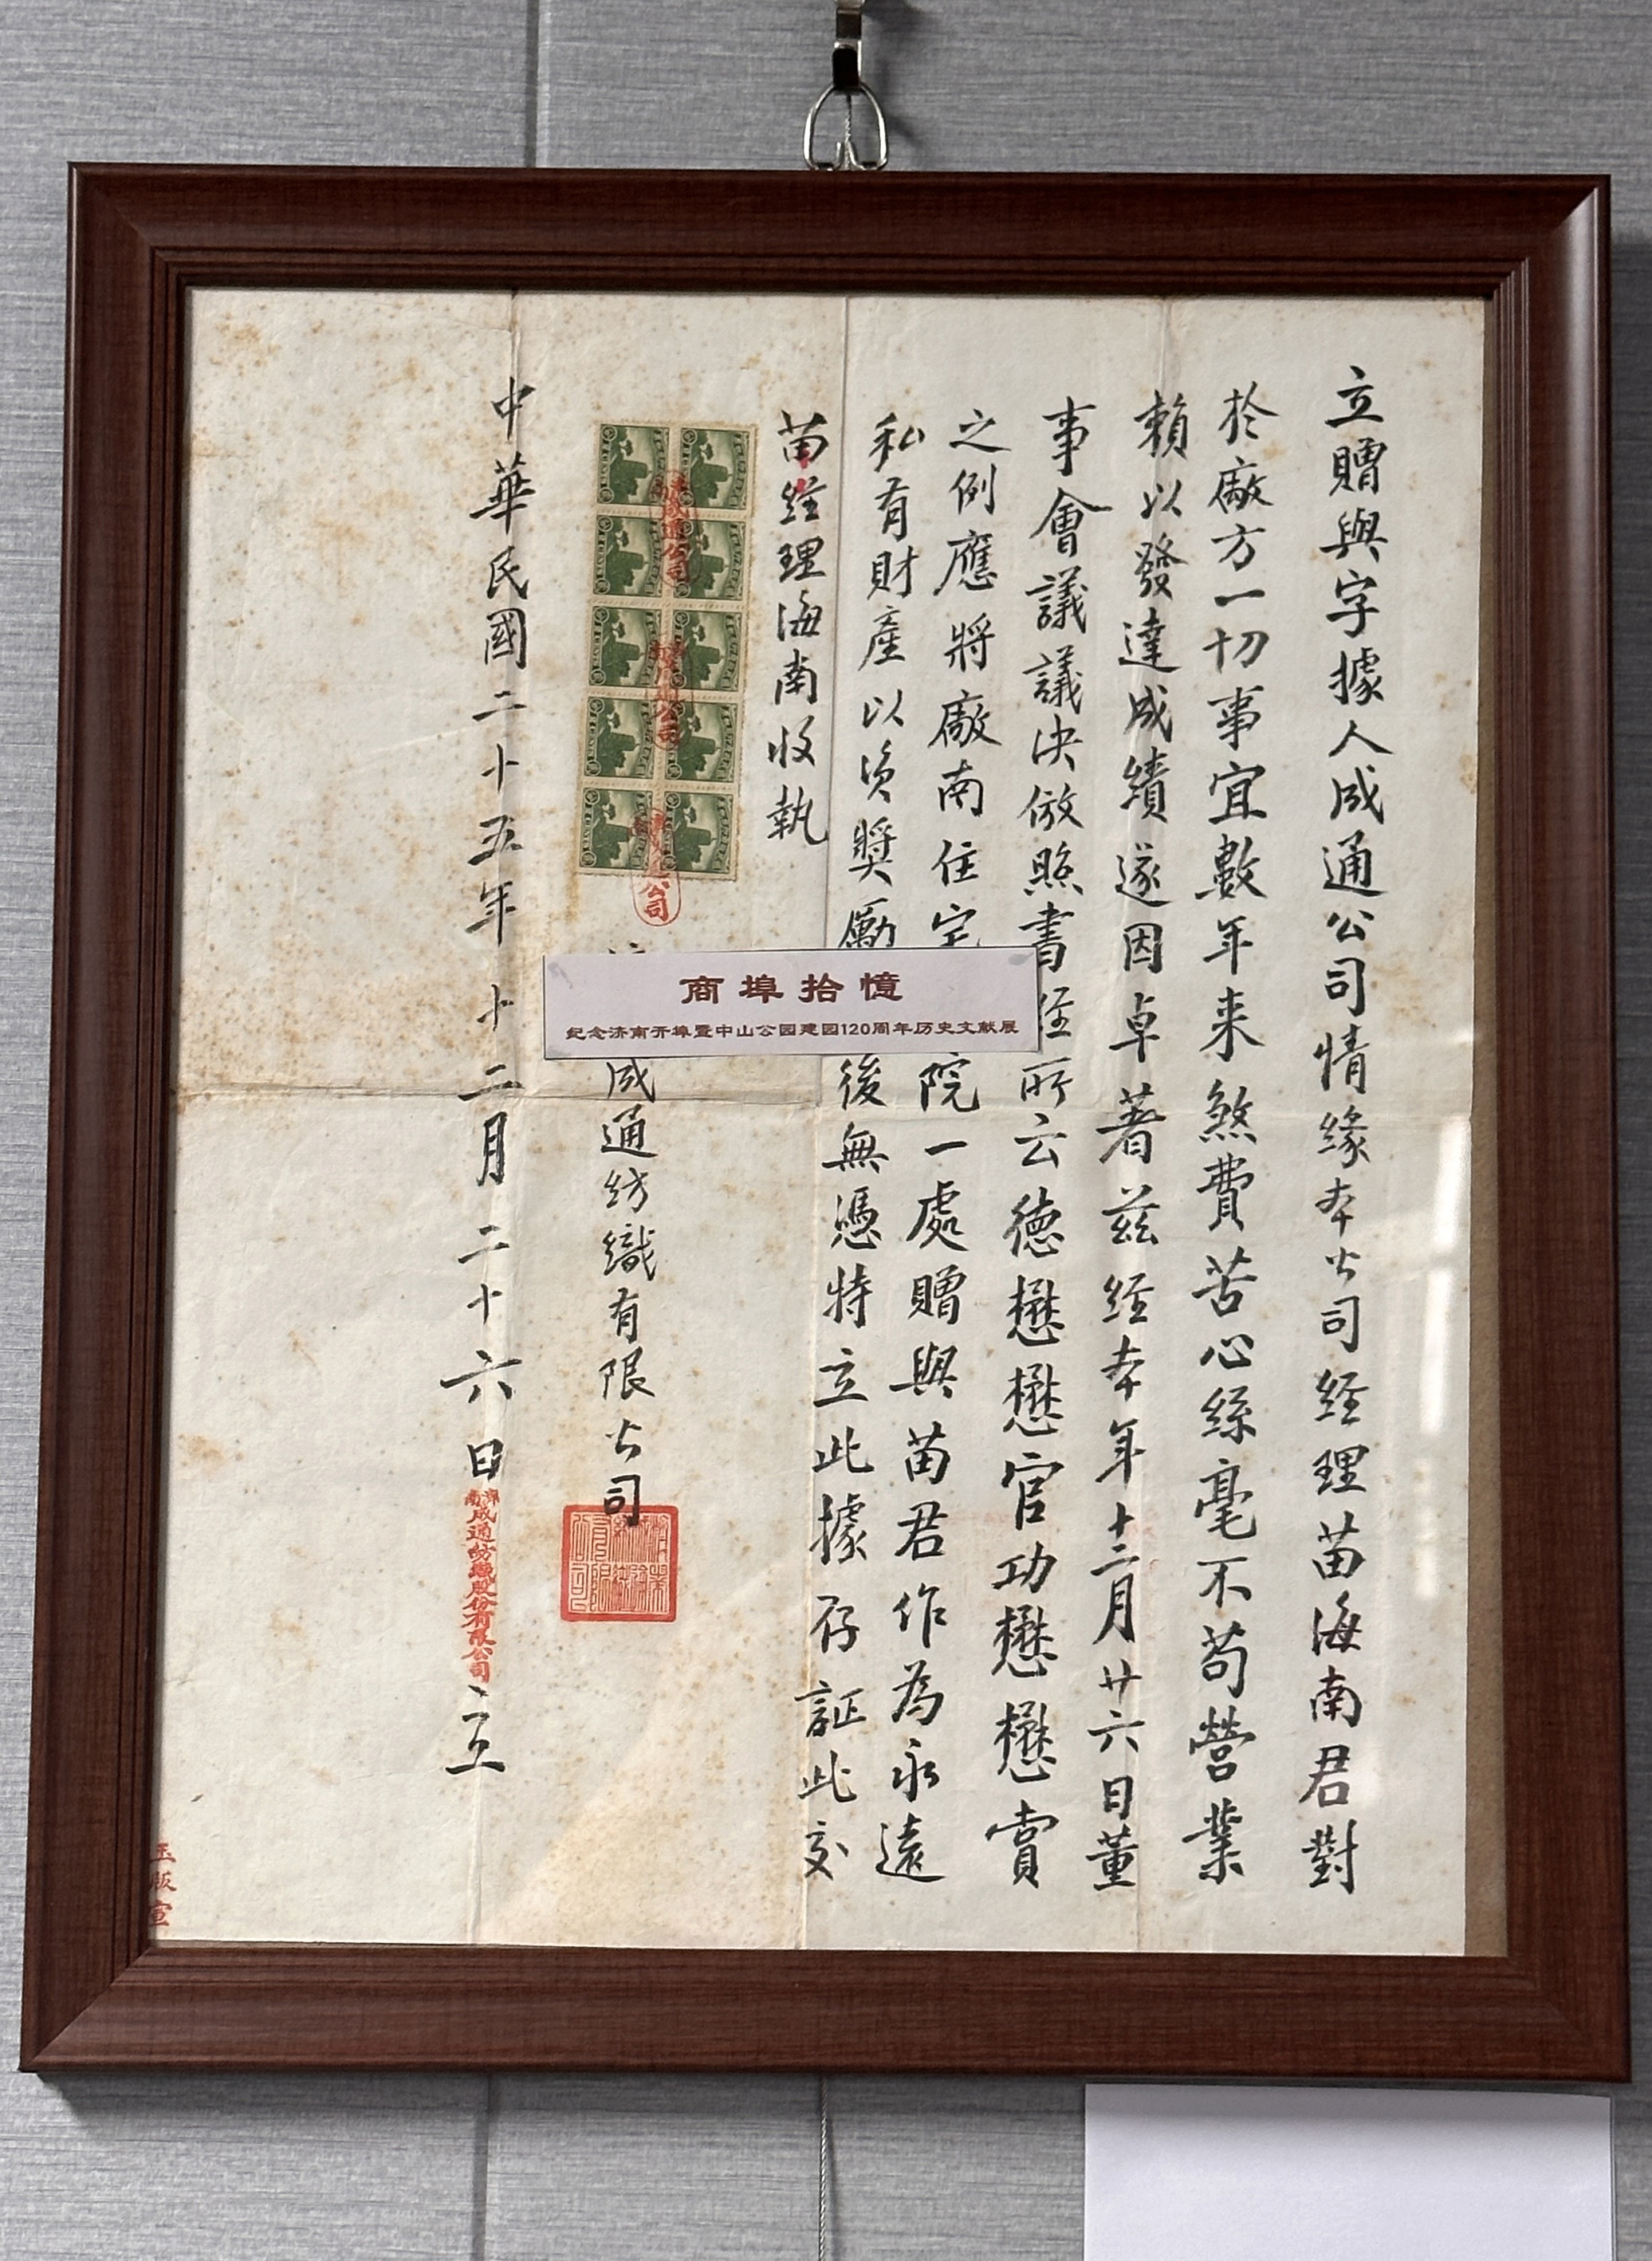 立贈與字據人成通公司情緣本公司經理苗海南君對
於廠方一切事宜數年来煞費苦心絲毫不苟營業
賴以發達成績遂因卓著兹經本年十二月廿六日董
事會議議決倣照書經所云德懋懋官功懋懋賞
之例應將廠南住宅院一處贈與苗君作為永遠
私有財產以資奬勵後無憑特立此據存証此交
苗經理海南收執
成通紡織有限公司
中華民國二十五年十二月二十六日
濟南成通紡織股份有限公司
立
成通公司
公司
公司
商埠拾憶
纪念济南开埠暨中山公园建园120周年历史文献展
玉版宣